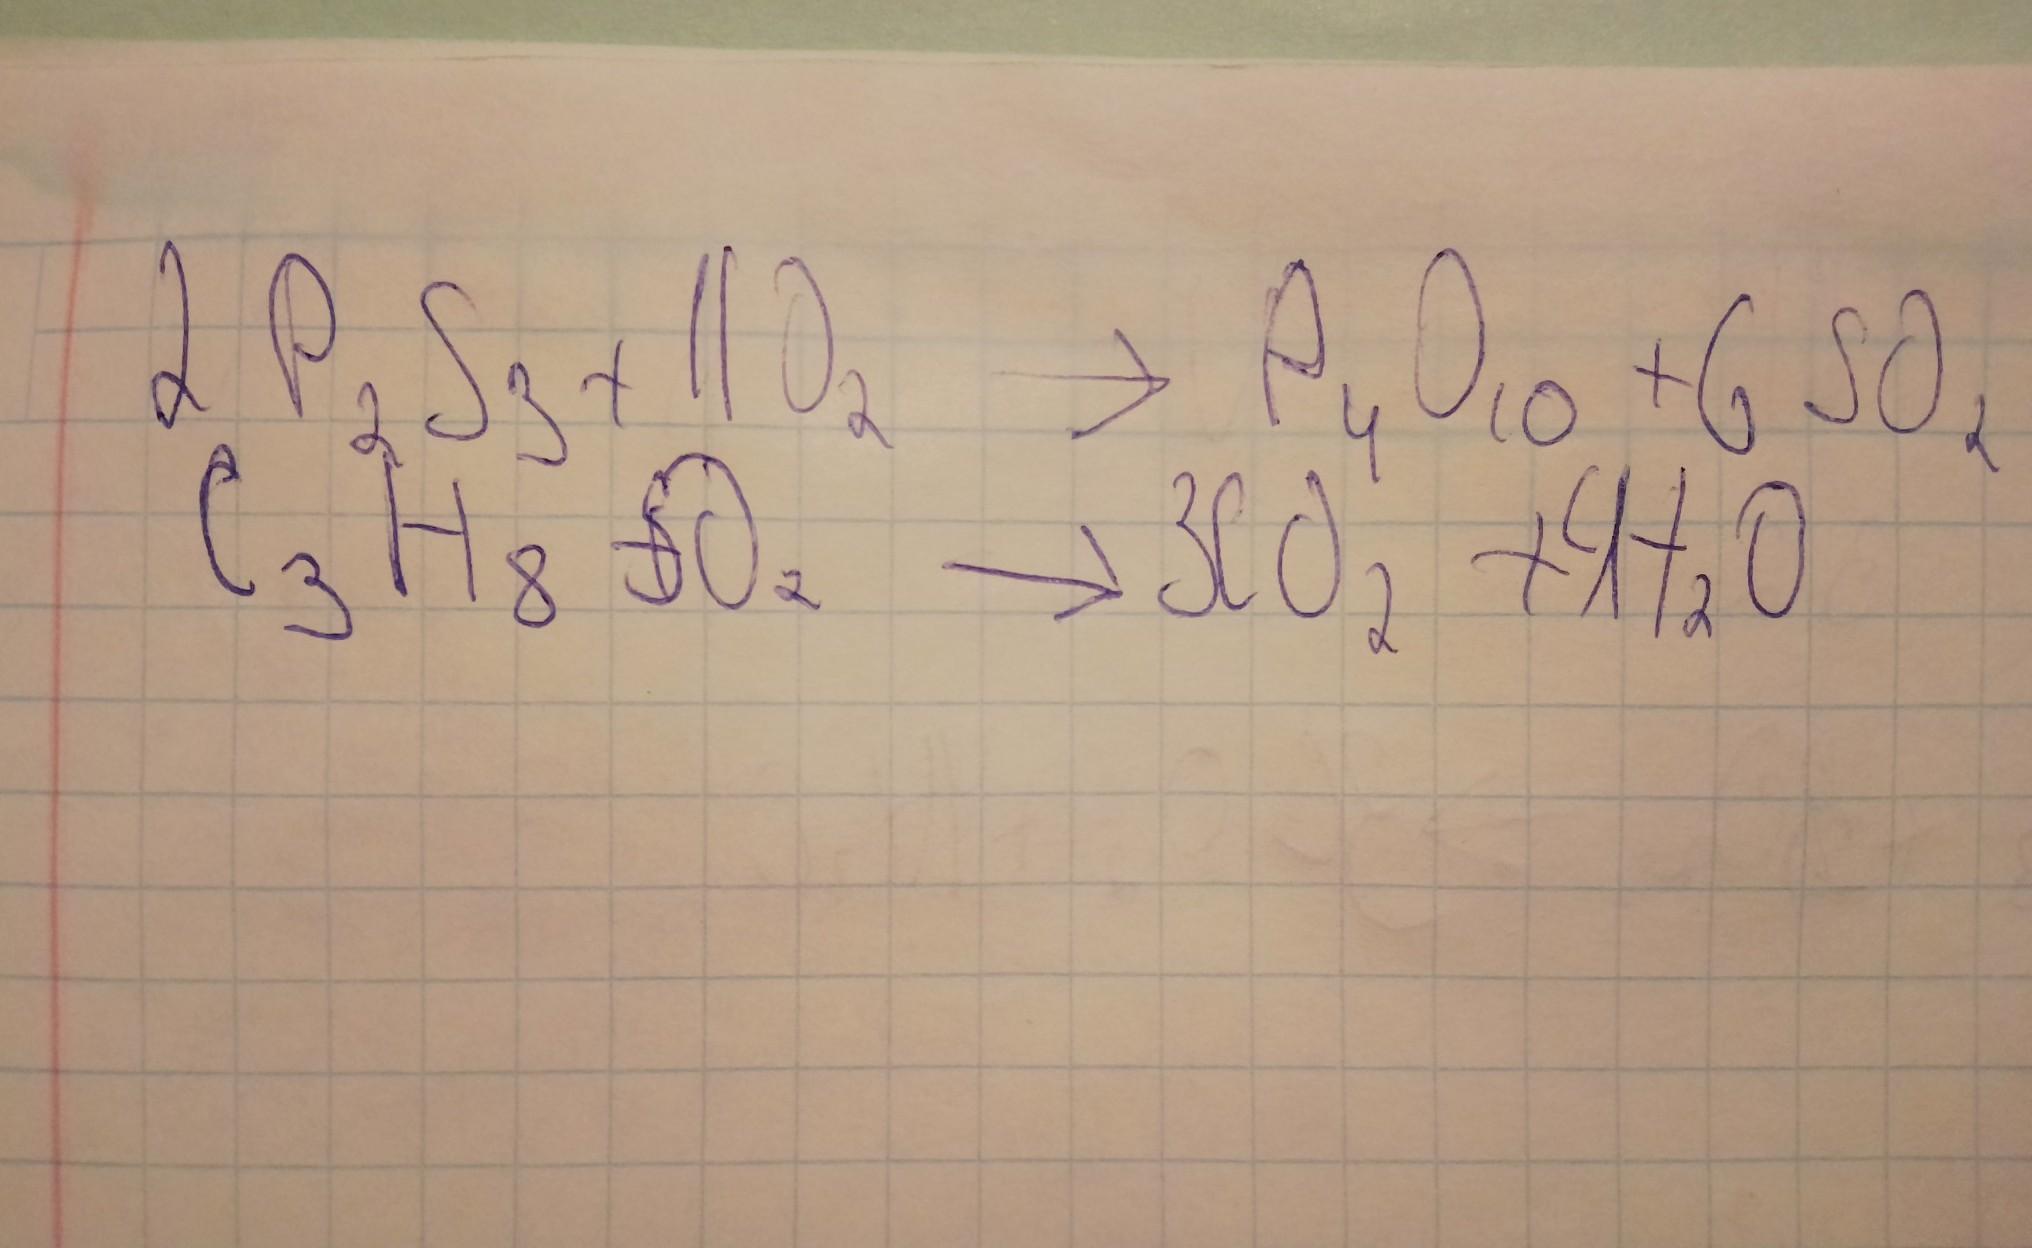 2P₂S₃ + 11O₂ → P₄O₁₀ + 6SO₂
C₃H₈ + 5O₂ → 3CO₂ + 4H₂O